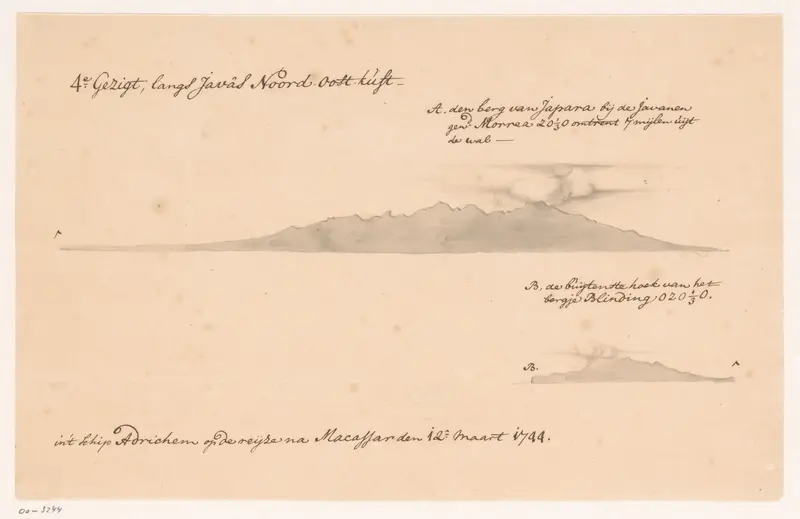 4e. Gezigt, langs Javâs Noord-Oost-kúst_
A. den berg van Japara bij de Javanen
gend. Morrea ZO⅓O omtrent 7 mijlen uÿt
de wal —
B. de buÿtenste hoek van het
bergje Blinding OZO⅓O.
B.
in't Schip Adrichem op de reÿze na Macassar den 12e. maart 1744.
OO-3244